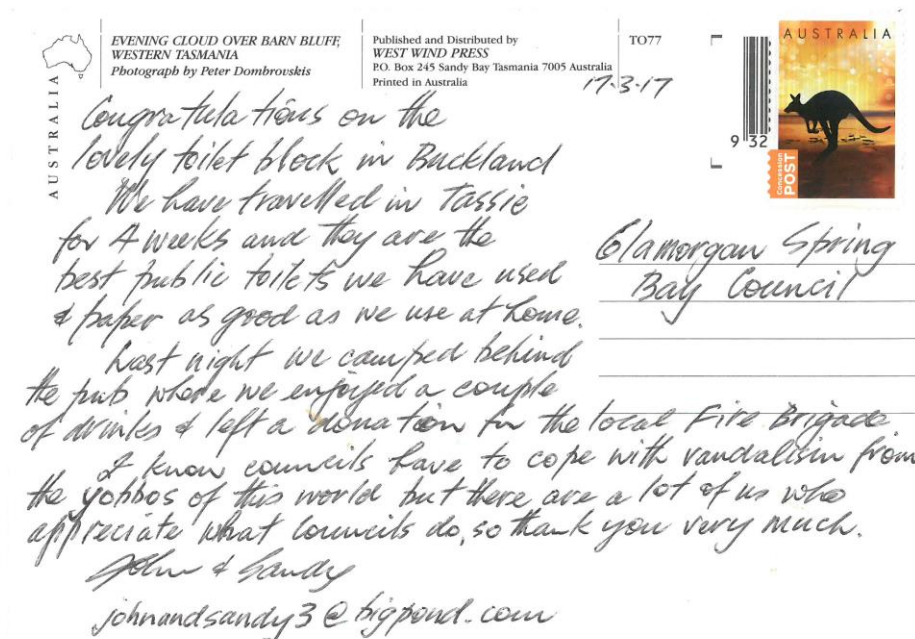 AUSTRALIA
EVENING CLOUD OVER BARN BLUFF,
WESTERN TASMANIA
Photograph by Peter Dombrovskis
Published and Distributed by
WEST WIND PRESS
P.O. Box 245 Sandy Bay Tasmania 7005 Australia
Printed in Australia
TO77
17·3·17
9 32
AUSTRALIA
Concession
POST
Congratulations on the
lovely toilet block in Buckland
We have travelled in Tassie
for 4 weeks and they are the
best public toilets we have used
& paper as good as we use at home.
Last night we camped behind
the pub where we enjoyed a couple
of drinks & left a donation for the local Fire Brigade
I know councils have to cope with vandalism from
the yobbos of this world but there are a lot of us who
appreciate what Councils do, so thank you very much.
John & Sandy
johnandsandy3@bigpond.com
Glamorgan Spring
Bay Council